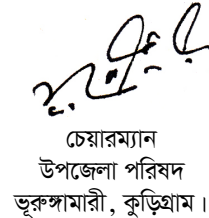 চেয়ারম্যান
উপজেলা পরিষদ
ভূরুঙ্গামারী, কুড়িগ্রাম।